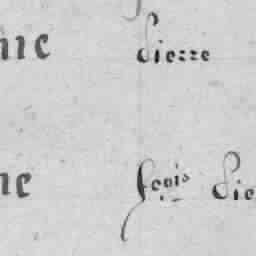 ne Pierre
ne Louis Pie